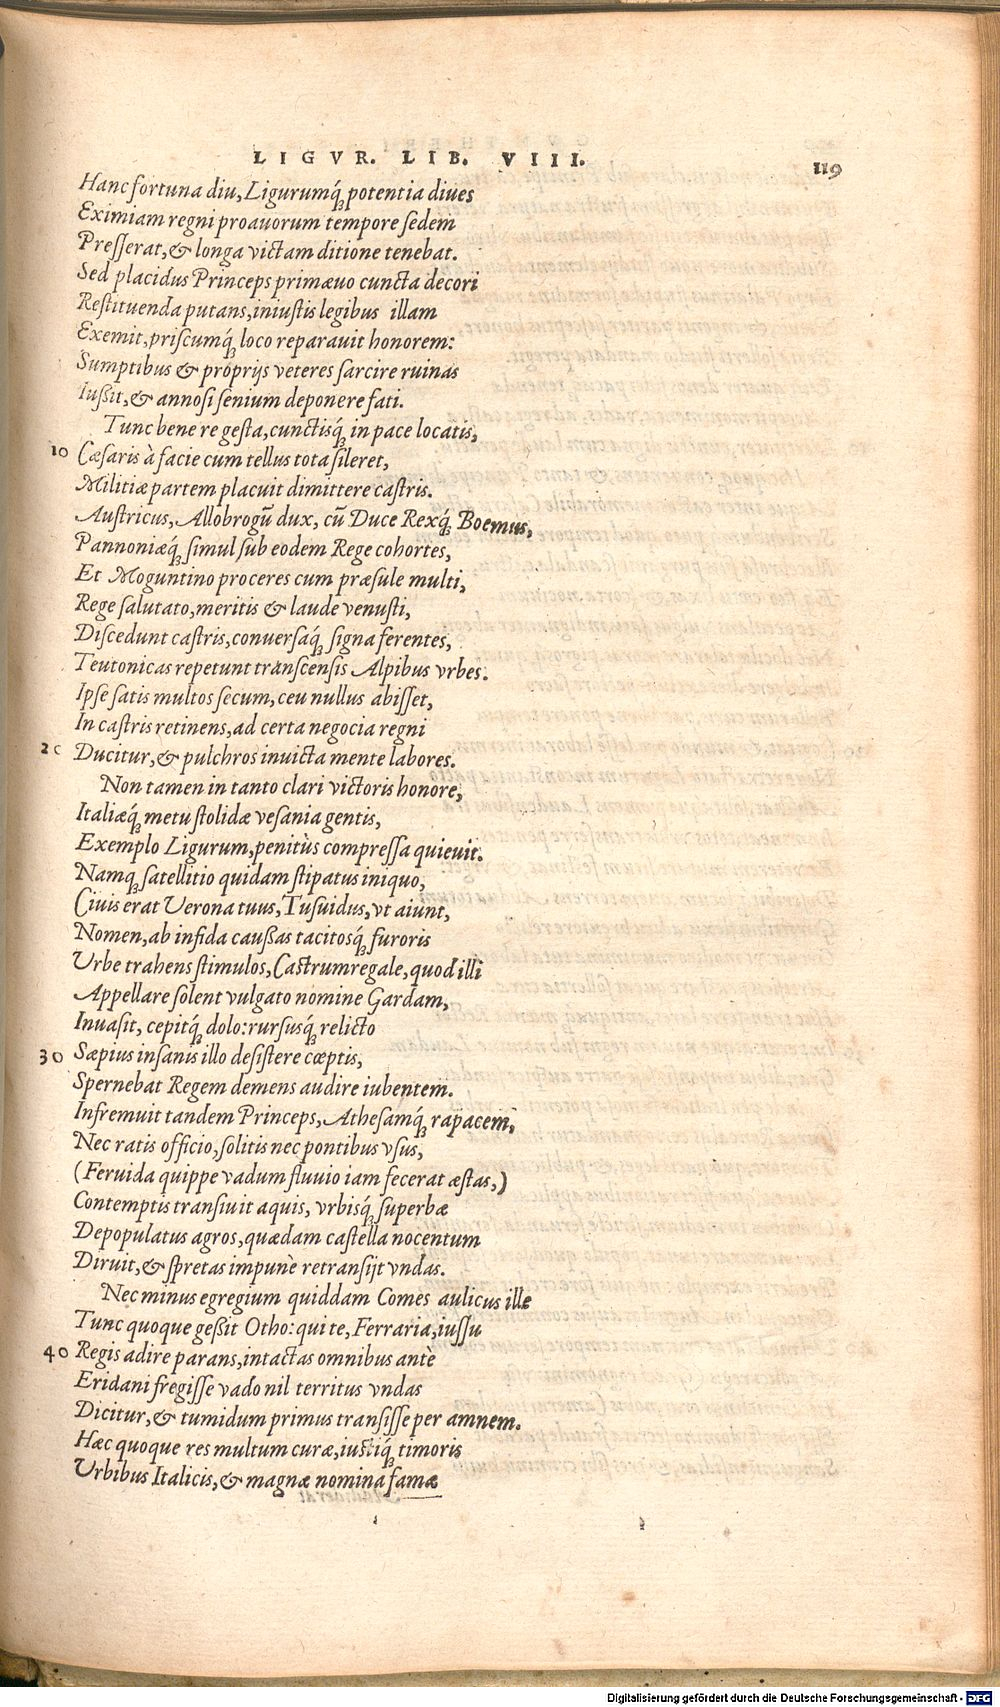 LIGVR. LIB. VIII. 119
Hanc fortuna diu, Ligurumq́; potentia diues
Eximiam regni proauorum tempore sedem
Presserat, & longa victam ditione tenebat.
Sed placidus Princeps primæuo cuncta decori
Restituenda putans, iniustis legibus illam
Exemit, priscumq́; loco reparauit honorem:
Sumptibus & proprijs veteres sarcire ruinas
Iußit, & annosi senium deponere fati.
Tunc bene re gesta, cunctisq́; in pace locatis,
10 Cæsaris à facie cum tellus tota sileret,
Militiæ partem placuit dimittere castris.
Austricus, Allobrogũ dux, cũ Duce Rexq́; Boemus,
Pannoniæq́; simul sub eodem Rege cohortes,
Et Moguntino proceres cum præsule multi,
Rege salutato, meritis & laude venusti,
Discedunt castris, conuersaq́; signa ferentes,
Teutonicas repetunt transcensis Alpibus vrbes.
Ipse satis multos secum, ceu nullus abisset,
In castris retinens, ad certa negocia regni
20 Ducitur, & pulchros inuicta mente labores.
Non tamen in tanto clari victoris honore,
Italiæq́; metu stolidæ vesania gentis,
Exemplo Ligurum, penitùs compressa quieuit.
Namq; satellitio quidam stipatus iniquo,
Ciuis erat Verona tuus, Tusuidus, vt aiunt,
Nomen, ab infida caußas tacitosq́; furoris
Vrbe trahens stimulos, Castrum regale, quod illi
Appellare solent vulgato nomine Gardam,
Inuasit, cepitq́; dolo: rursusq́; relicto
30 Sæpius insanis illo desistere cœptis,
Spernebat Regem demens audire iubentem.
Infremuit tandem Princeps, Athesamq́; rapacem,
Nec ratis officio, solitis nec pontibus vsus,
(Feruida quippe vadum fluuio iam fecerat æstas,)
Contemptis transiuit aquis, vrbisq́; superbæ
Depopulatus agros, quædam castella nocentum
Diruit, & spretas impunè retransijt vndas.
Nec minus egregium quiddam Comes aulicus ille
Tunc quoque geßit Otho: qui te, Ferraria, iussu
40 Regis adire parans, intactas omnibus antè
Eridani fregisse vado nil territus vndas
Dicitur, & tumidum primus transisse per amnem.
Hæc quoque res multum curæ, iustiq́; timoris
Vrbibus Italicis, & magnæ nomina famæ
Digitalisierung gefördert durch die Deutsche Forschungsgemeinschaft - DFG